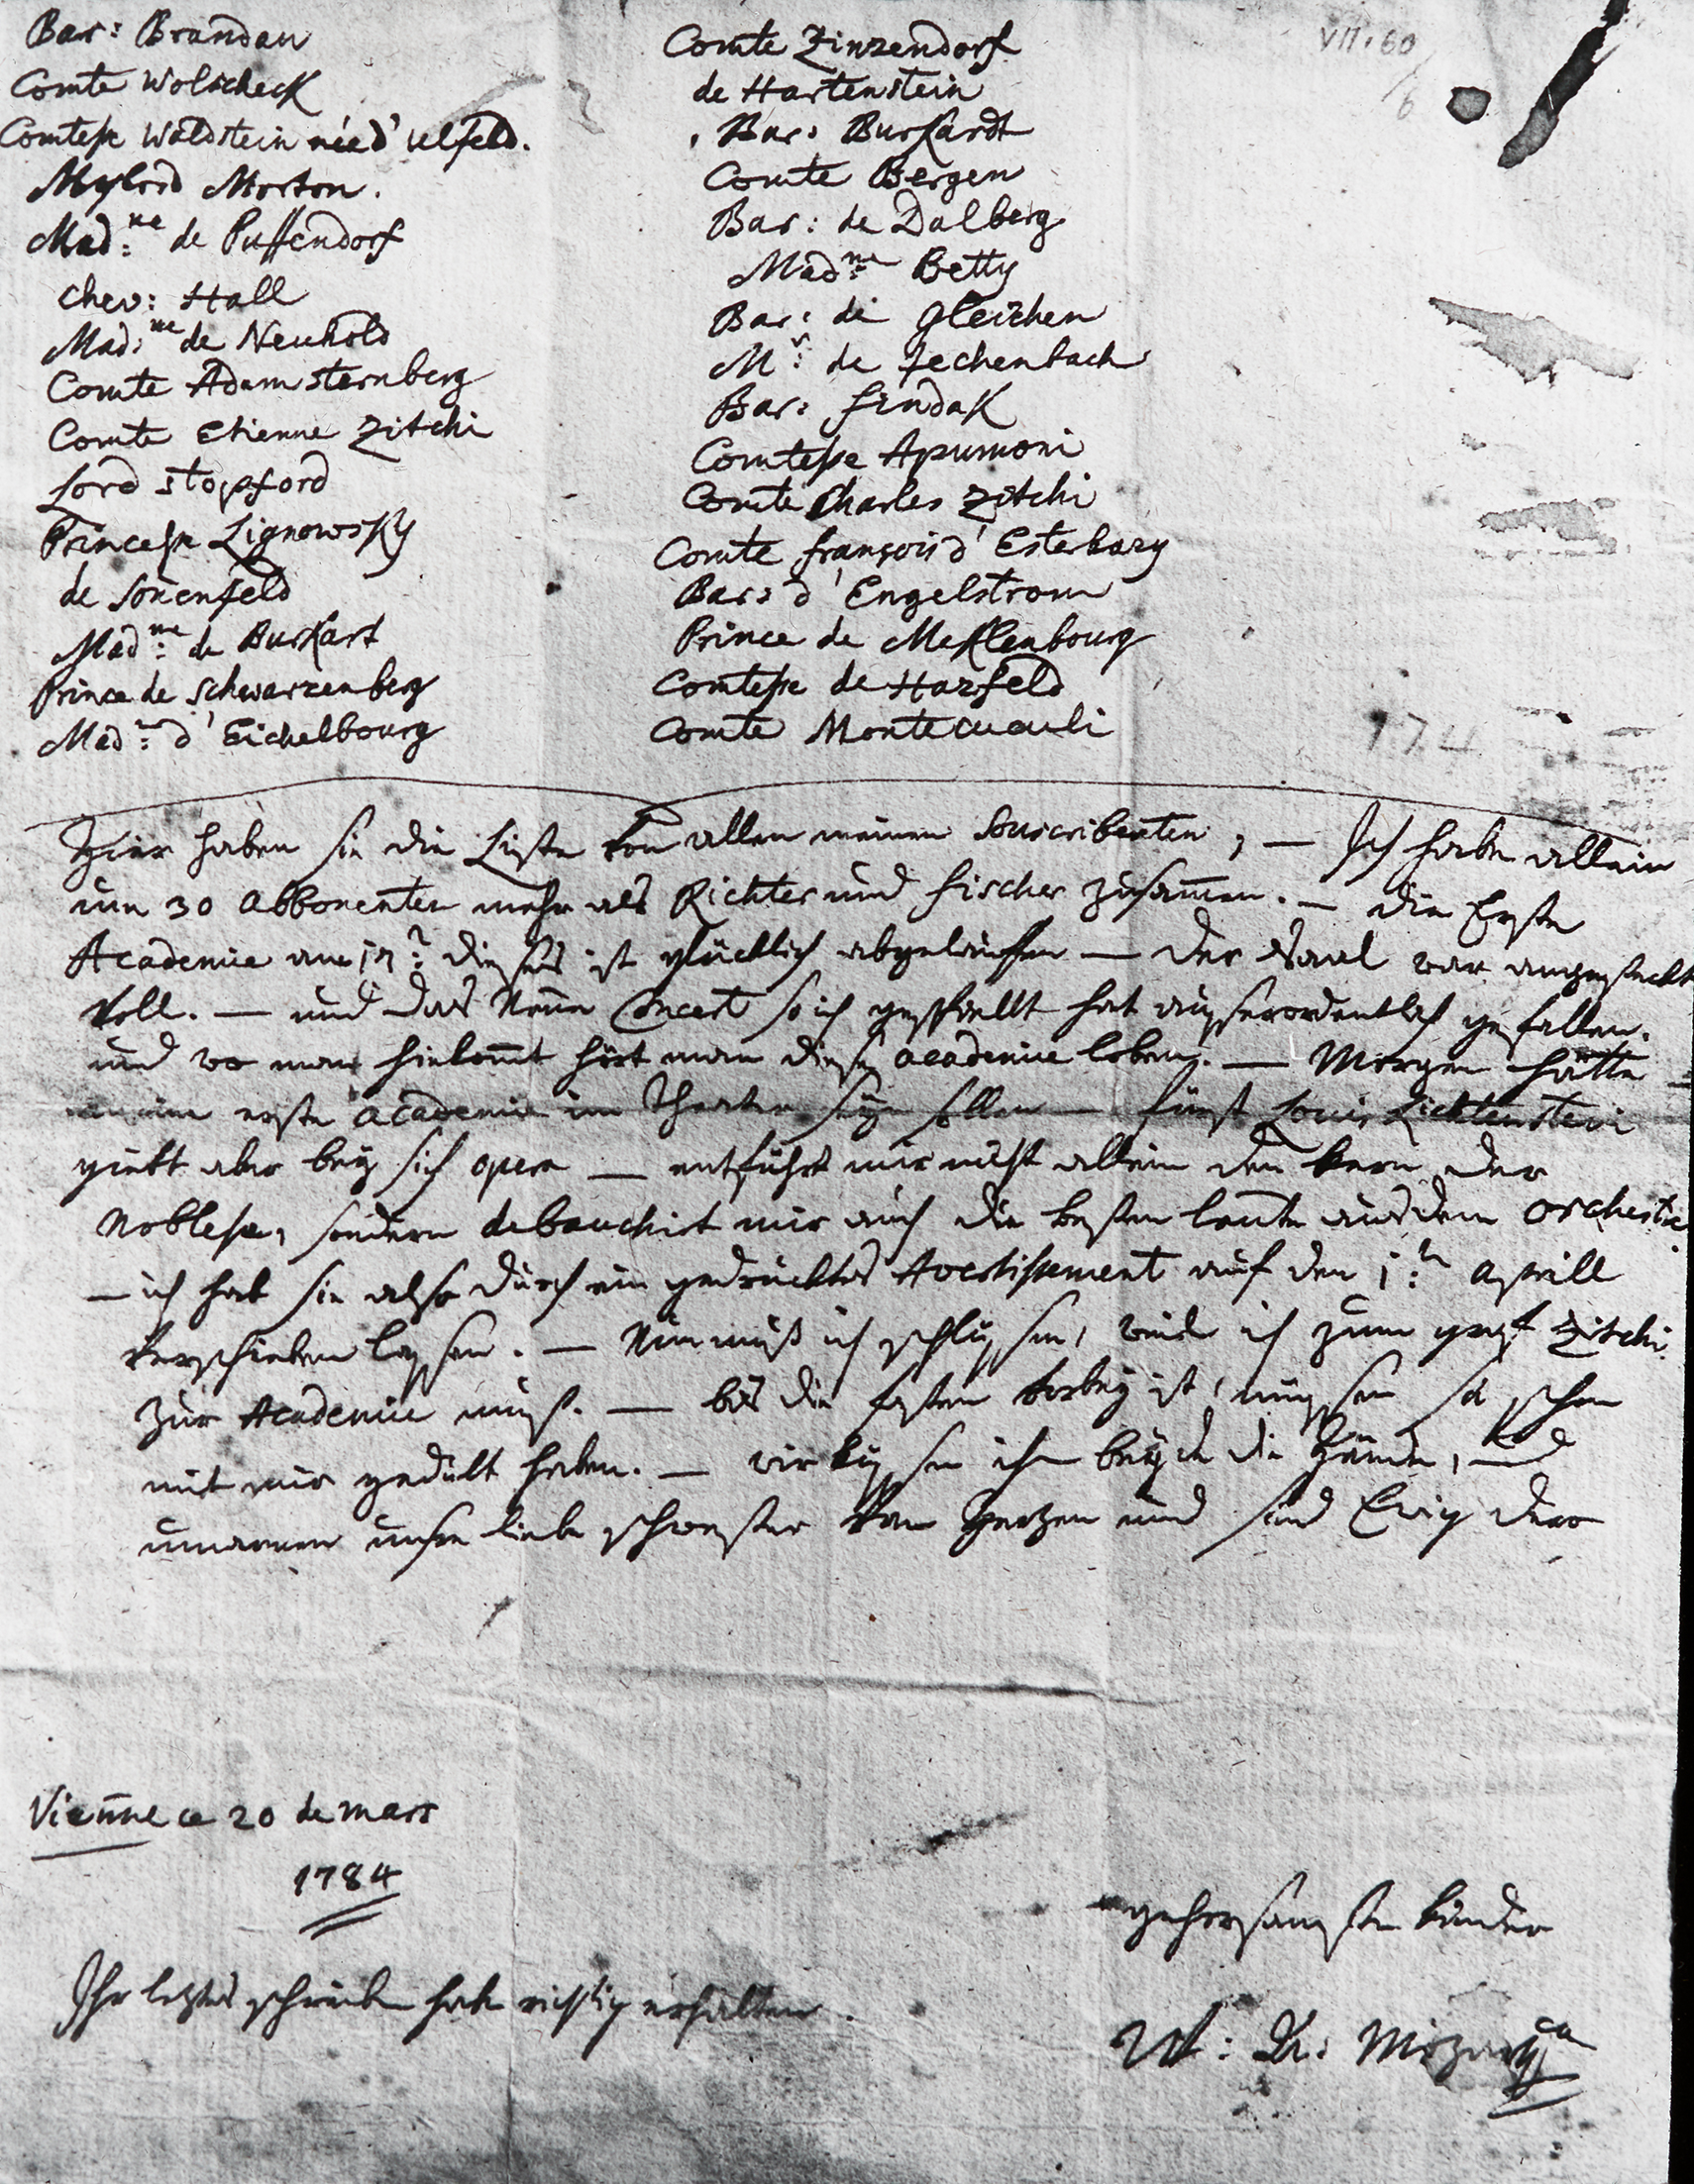 Bar: Brandau
Comte Wolscheck
Comtesse Waldstein néed' ulfeld.
Mylord Morton.
Mad:me de Puffendorf
chev: Hall
Mad:me de Neuhold
Comte Adam sternberg
Comte Etienne Zitchi
Lord stopford
Princesse Lignowsky
de sonenfeld
Mad:me de Burkart
Prince de schwarzenberg
Mad:me d' Eichelbourg
Comte Zinzendorf
de Hartenstein
Bar: Burkardt
Comte Bergen
Bar: de Dalberg
Mad:me Betty
Bar: de gleichen
M:r de techenbach
Bar: findak
Comtesse Apumoni
Comte Charles Zitchi
Comte françois d' Esterhazy
Bar: d' Engelstrom
Prince de Meklenbourg
Comtesse de Harfeld
Comte Montecuculi
VII. 60
6
174
Hier haben sie die Liste von allen meinen souscribenten; — Ich habe allein
um 30 abbonenten mehr als Richter und fischer zusamen. — die Erste
Academie am 17:t dieses ist glücklich abgeloffen — der Saal war angesteckt
voll. — und das Neue Concert so ich gespiellt hat ausserordentlich gefallen.
und wo man hinkommt hört man diese academie loben. — Morgen hätte
meine erste academie im theater seyn sollen — fürst Louis Lichtenstein
giebt aber bey sich opera — entführt mir nicht allein den kern der
Noblesse, sondern debauchirt mir auch die besten leute aus dem orchestre.
— ich hab sie also durch ein gedrucktes Avertissement auf den 1:t aprill
verschieben lassen. — Nun muß ich schlüssen, weil ich zum graf Zitchi
zur Academie muß. — bis die fasten vorbey ist, müssen sie schon
mit mir gedult haben. — wir küssen ihnen beyde die hände, und
umarmen unsre liebe schwester von herzen und sind Ewig dero
Vienne ce 20 de mars
1784
gehorsamste kinder
Ihr letztes schreiben habe richtig erhalten.
W: A: Mozart